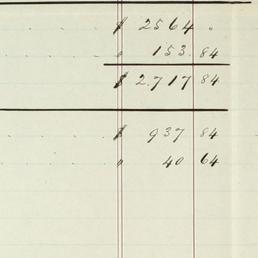 $ 2564 "
" 153.84
$ 2.717 84
$ 937 84
" 40 64